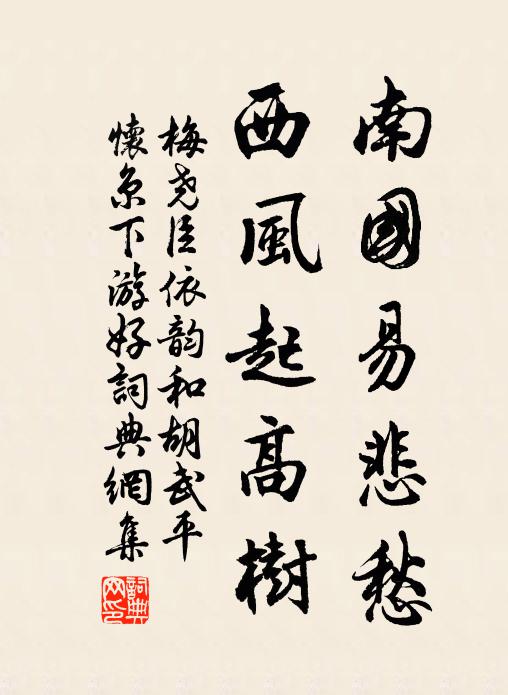 南國易悲愁
西風起高樹
梅堯臣依韵和胡武平
懷京下游好詞典網集
詞典
网印